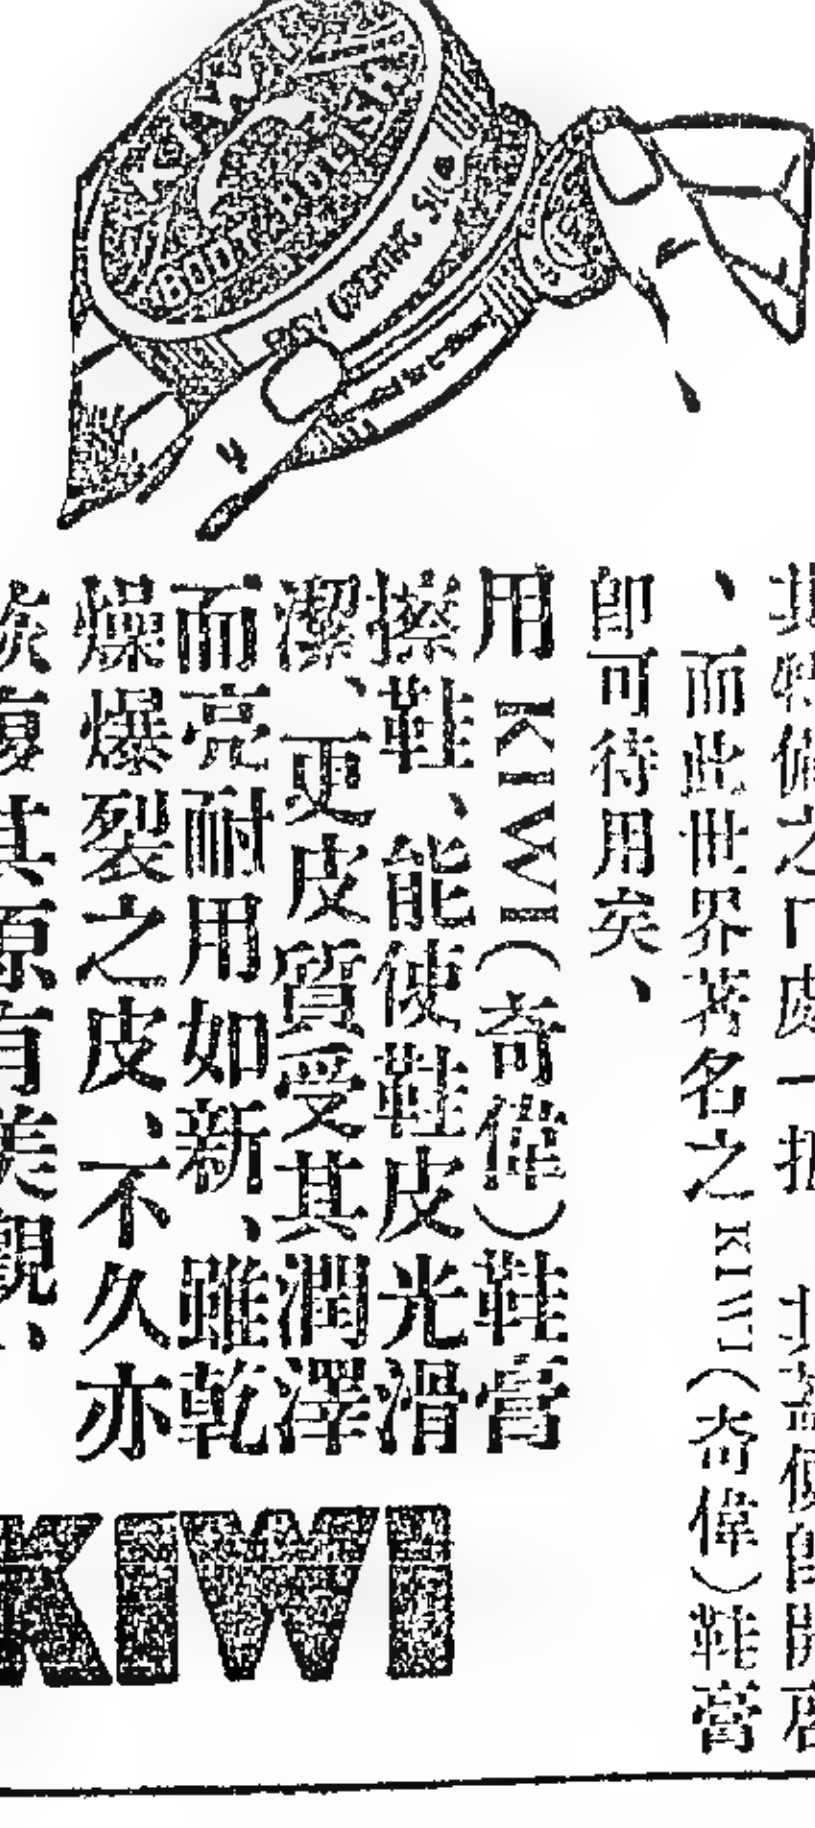 KIWI
BOOT POLISH
EASY OPENING
特備之口處一
、而此世界著名之KIWI(奇偉)鞋膏
卽可待用矣、
用KIWI(奇偉)鞋膏
擦鞋、能使鞋皮光滑
潔、更皮質受其潤澤
而亮耐用如新、雖乾
燥爆裂之皮、不久亦
恢復其原有美觀、
KIWI